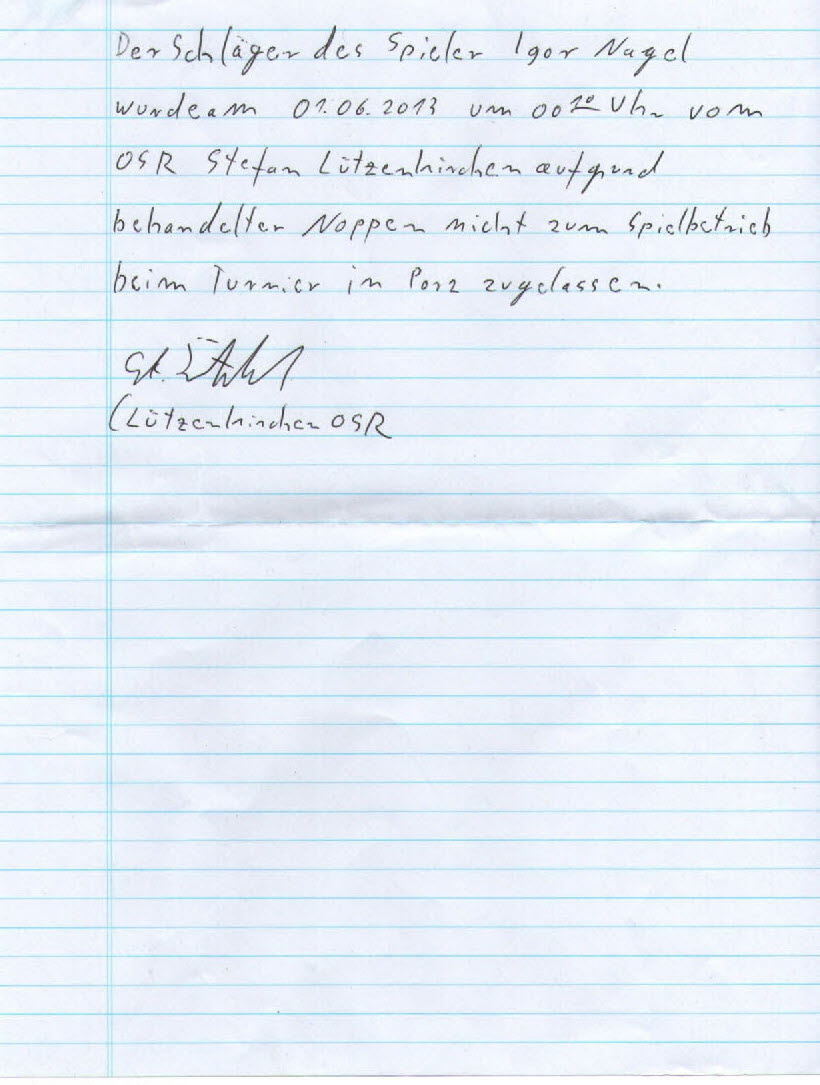 Der Schläger des Spieler Igor Nagel
wurde am 01.06.2013 um 00 10 Uhr vom
OSR Stefan Lützenkirchen aufgrund
behandelter Noppen nicht zum Spielbetrieb
beim Turnier in Porz zugelassen.
St.
(Lützenkirchen OSR